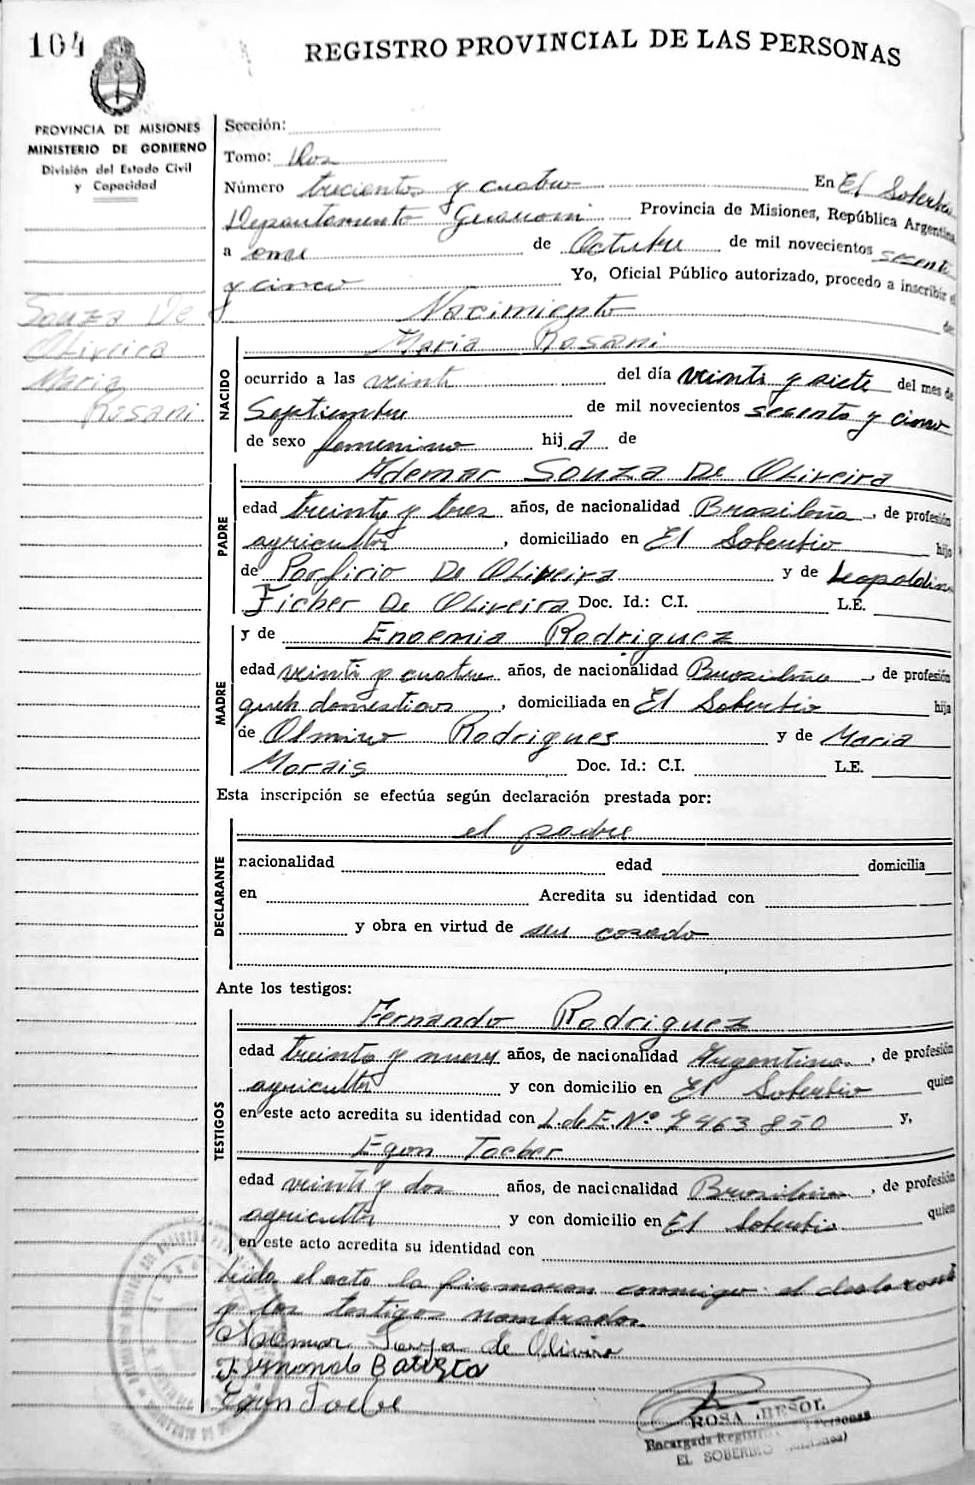 104
REGISTRO PROVINCIAL DE LAS PERSONAS
PROVINCIA DE MISIONES
MINISTERIO DE GOBIERNO
División del Estado Civil
y Capacidad
Souza De
Oliveira
Maria
Rosani
Sección:
Tomo: Dos
Número trecientos y cuatro En El Soberbio
Departamento Guarani Provincia de Misiones, República Argentina
a once de Octubre de mil novecientos sesenta
y cinco Yo, Oficial Público autorizado, procedo a inscribir el
Nacimiento de:
NACIDO
Maria Rosani
ocurrido a las veinte del día veinte y siete del mes de
Septiembre de mil novecientos sesenta y cinco
de sexo femenino hija de
PADRE
Ademar Souza De Oliveira
edad treinta y tres años, de nacionalidad Brasileña, de profesión
agricultor, domiciliado en El Soberbio hijo
de Porfirio De Oliveira y de Leopoldina
Ficher De Oliveira Doc. Id.: C.I. L.E.
MADRE
y de Enoemia Rodriguez
edad veinte y cuatro años, de nacionalidad Brasileña, de profesión
queh domesticos, domiciliada en El Soberbio hija
de Olmiro Rodrigues y de Maria
Morais Doc. Id.: C.I. L.E.
Esta inscripción se efectúa según declaración prestada por:
DECLARANTE
el padre
nacionalidad edad domicilia
en Acredita su identidad con
y obra en virtud de ser casado
Ante los testigos:
TESTIGOS
Fernando Rodriguez
edad treinta y nueve años, de nacionalidad Argentina, de profesión
agricultor y con domicilio en El Soberbio quien
en este acto acredita su identidad con L.deE.Nº 7463850 y,
Egon Tacher
edad veinte y dos años, de nacionalidad Brasileña, de profesión
agricultor y con domicilio en El Soberbio quien
en este acto acredita su identidad con
Leida el acta la firmaron conmigo el declarante
y los testigos nombrados.
Ademar Souza de Oliveira
Fernando Batista
Egon
ROSA BESOL
Encargada Registro Personas
EL SOBERBIO (Misiones)